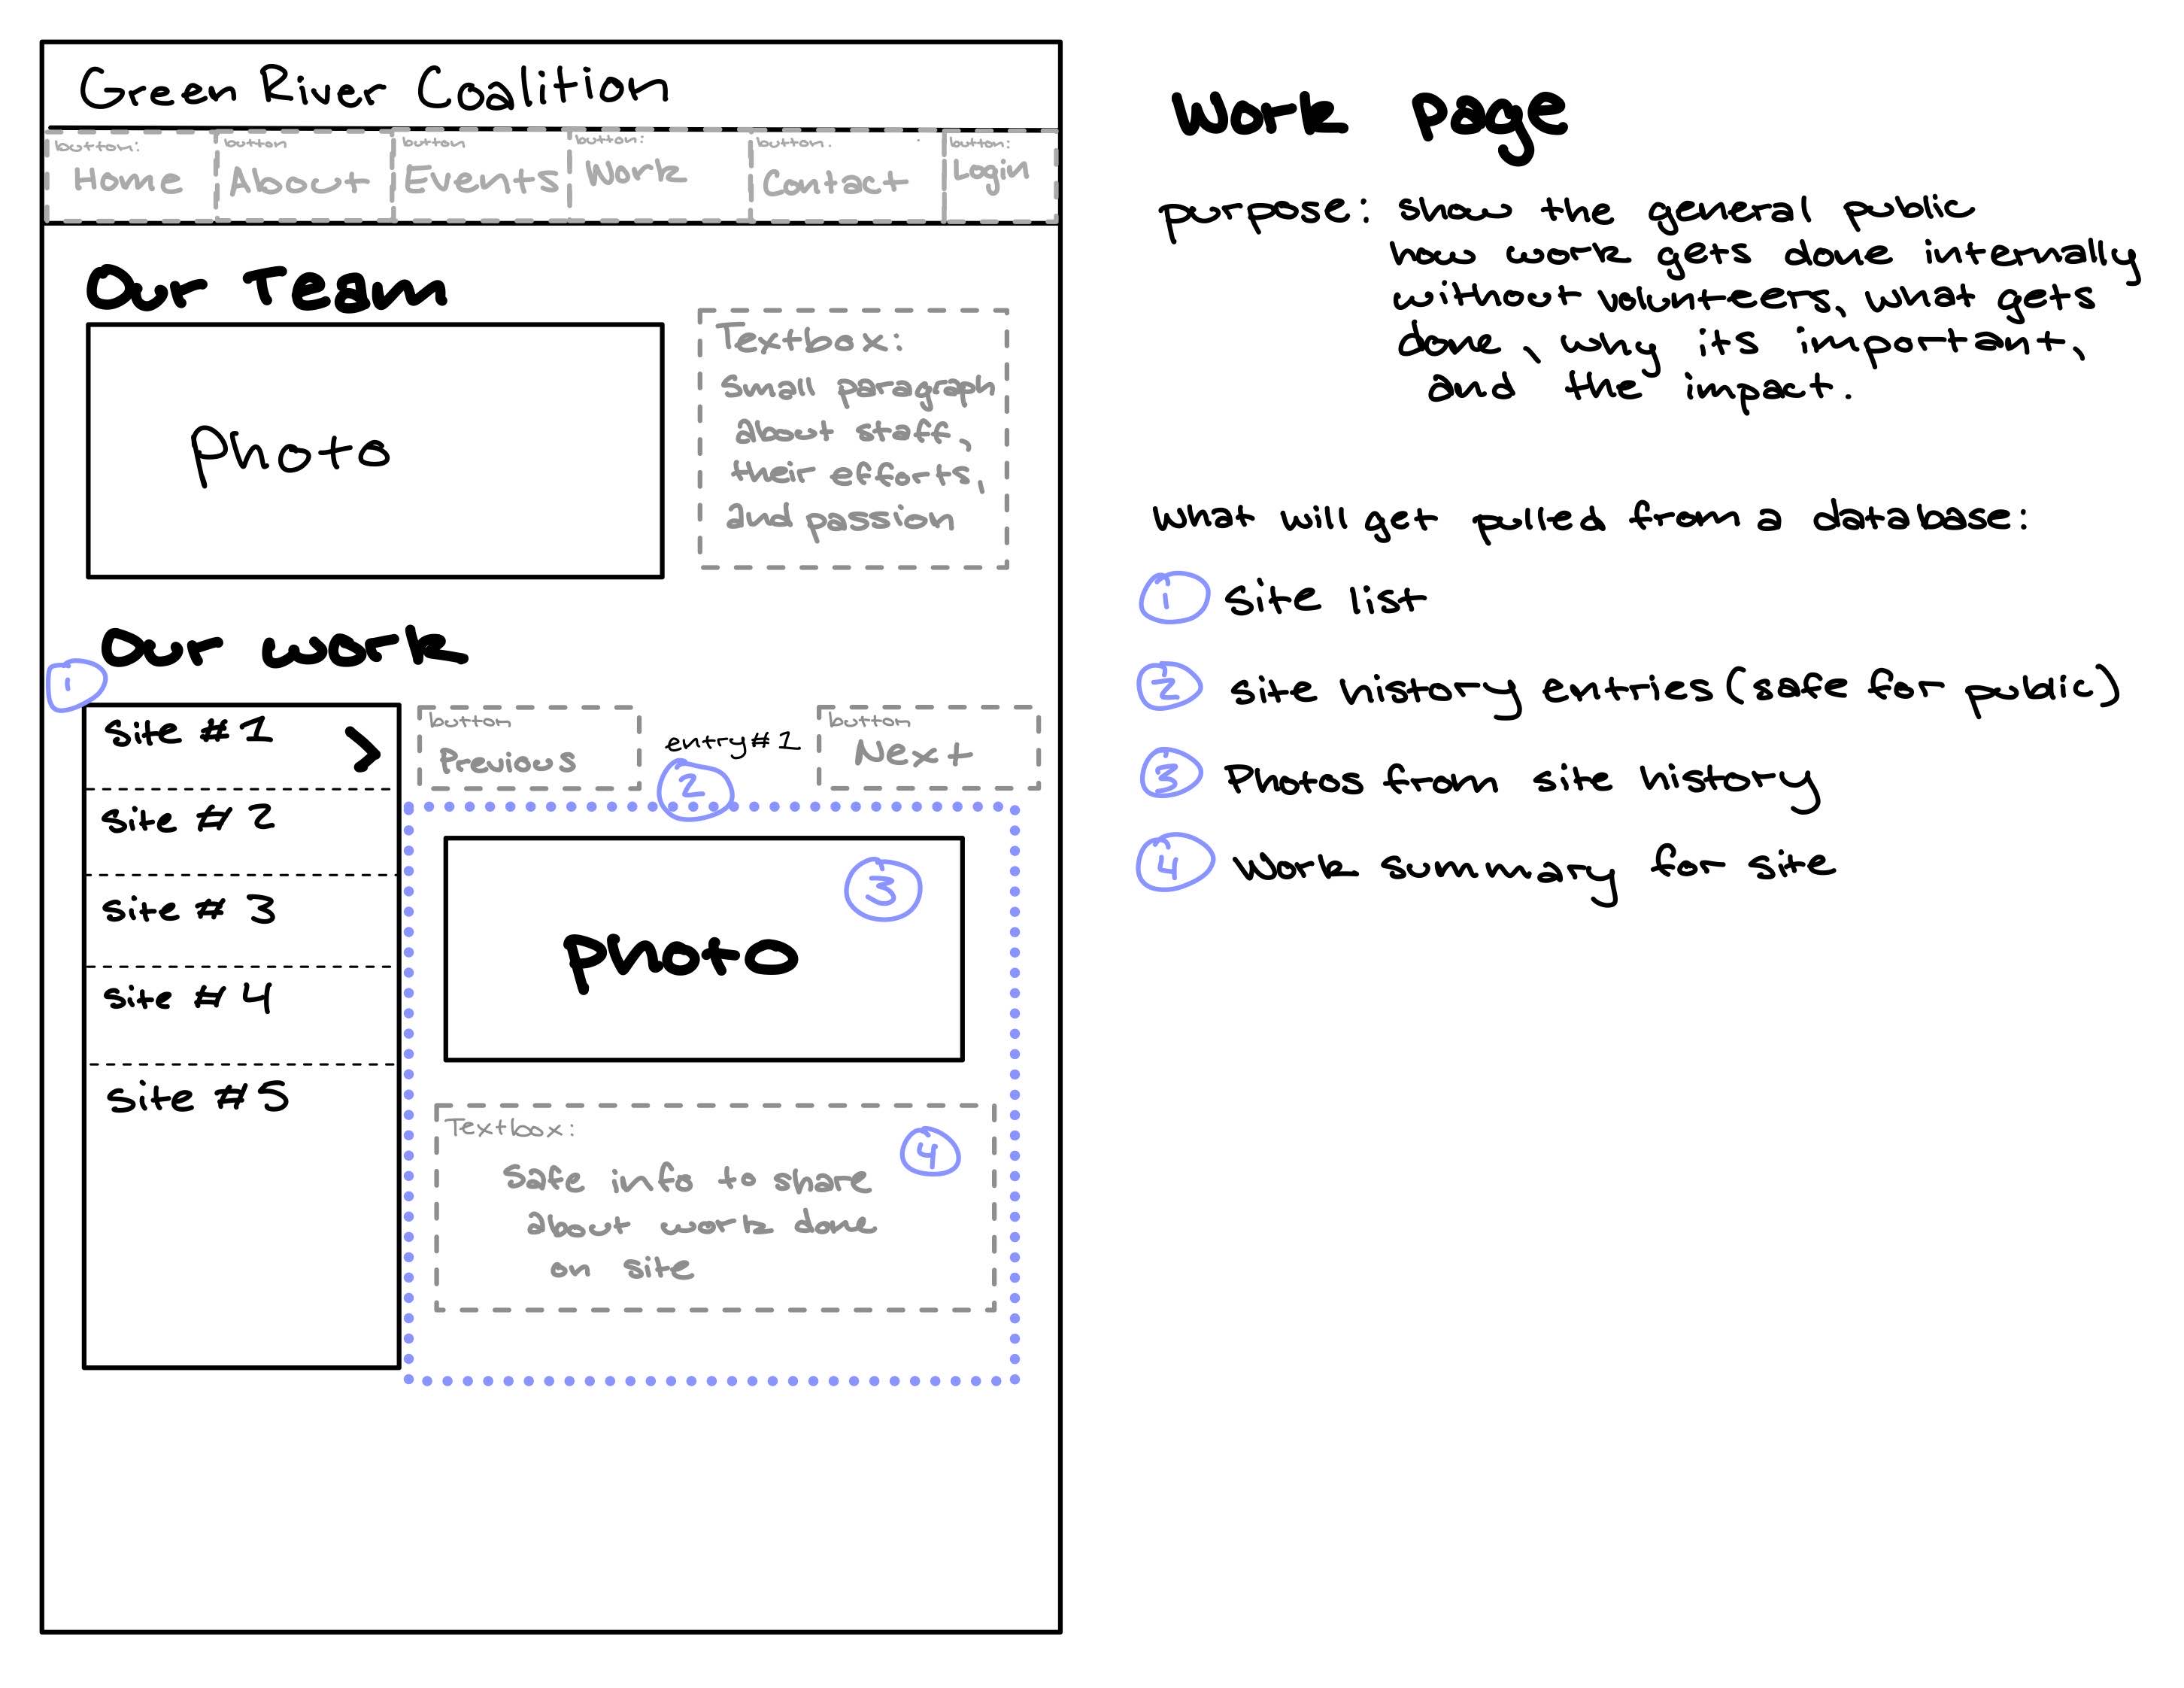 Green River Coalition
button: Home
button About
button Events
button: Work
button. Contact
button: Login
Our Team
Photo
Textbox:
Small paragraph
about staff,
their efforts,
and passion
Our work
1
Site #1 >
Site #2
Site #3
Site #4
Site #5
button
Previous
entry#1
2
button
Next
3
Photo
Textbox:
4
Safe info to share
about work done
on site
Work Page
purpose: show the general public
how work gets done internally
without volunteers, what gets
done, why its important,
and the impact.
What will get pulled from a database:
1 Site list
2 Site history entries (safe for public)
3 Photos from site history
4 Work summary for site